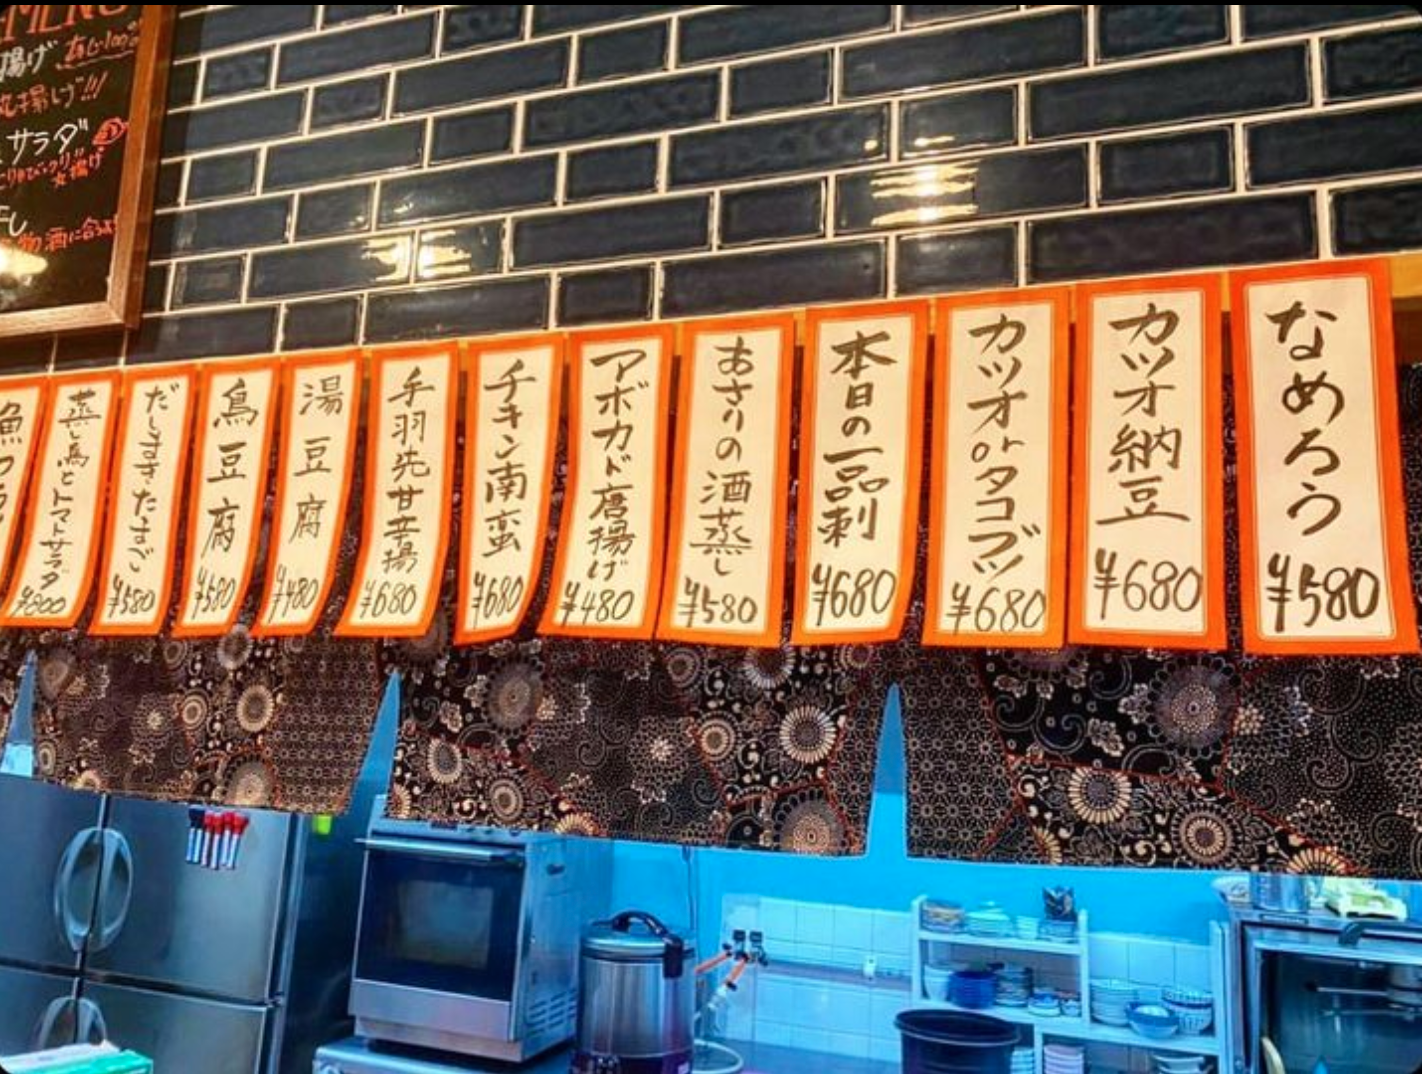 MENU
揚げ
丸揚げ!!!
サラダ
丸揚げ
なめろう
¥580
カツオ納豆
¥680
カツオorタコブツ
¥680
本日の一品刺
¥680
あさりの酒蒸し
¥580
アボカド唐揚げ
¥480
チキン南蛮
¥680
手羽先甘辛揚
¥680
湯豆腐
¥480
鳥豆腐
¥580
だしまきたまご
¥580
蒸し鳥とトマトサラダ
¥800
魚